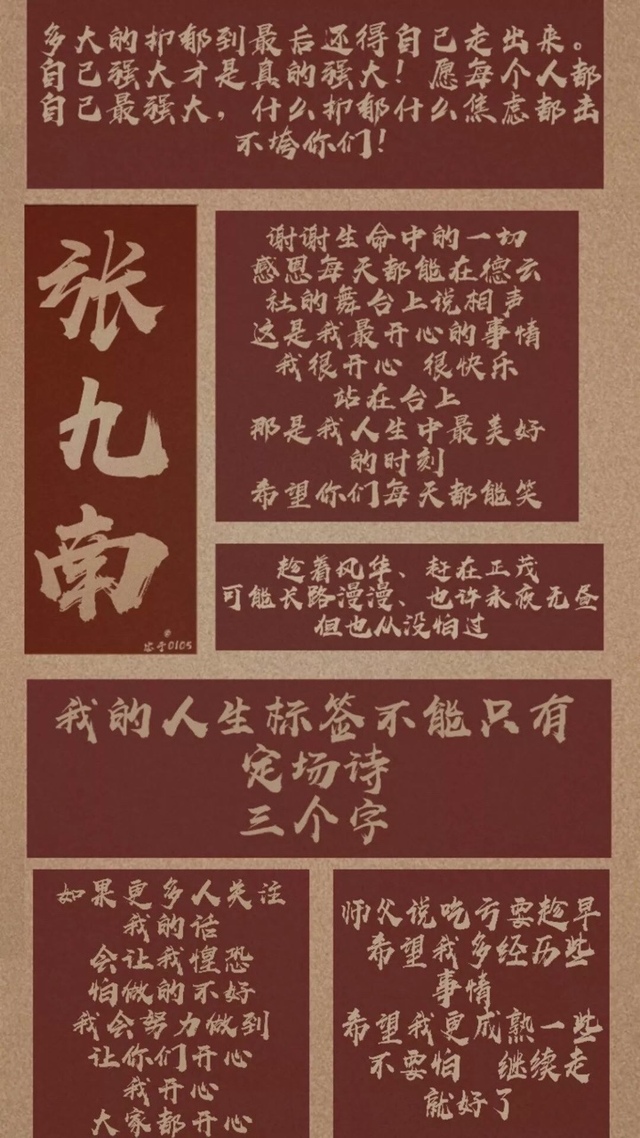 多大的抑郁到最后还得自己走出来。
自己强大才是真的强大！愿每个人都
自己最强大，什么抑郁什么焦虑都击
不垮你们！
张九南
谢谢生命中的一切
感恩每天都能在德云
社的舞台上说相声
这是我最开心的事情
我很开心 很快乐
站在台上
那是我人生中最美好
的时刻
希望你们每天都能笑
趁着风华、赶在正茂
可能长路漫漫、也许永夜无昼
但也从没怕过
我的人生标签不能只有
定场诗
三个字
如果更多人关注
我的话
会让我惶恐
怕做的不好
我会努力做到
让你们开心
我开心
大家都开心
师父说吃亏要趁早
希望我多经历些
事情
希望我更成熟一些
不要怕 继续走
就好了